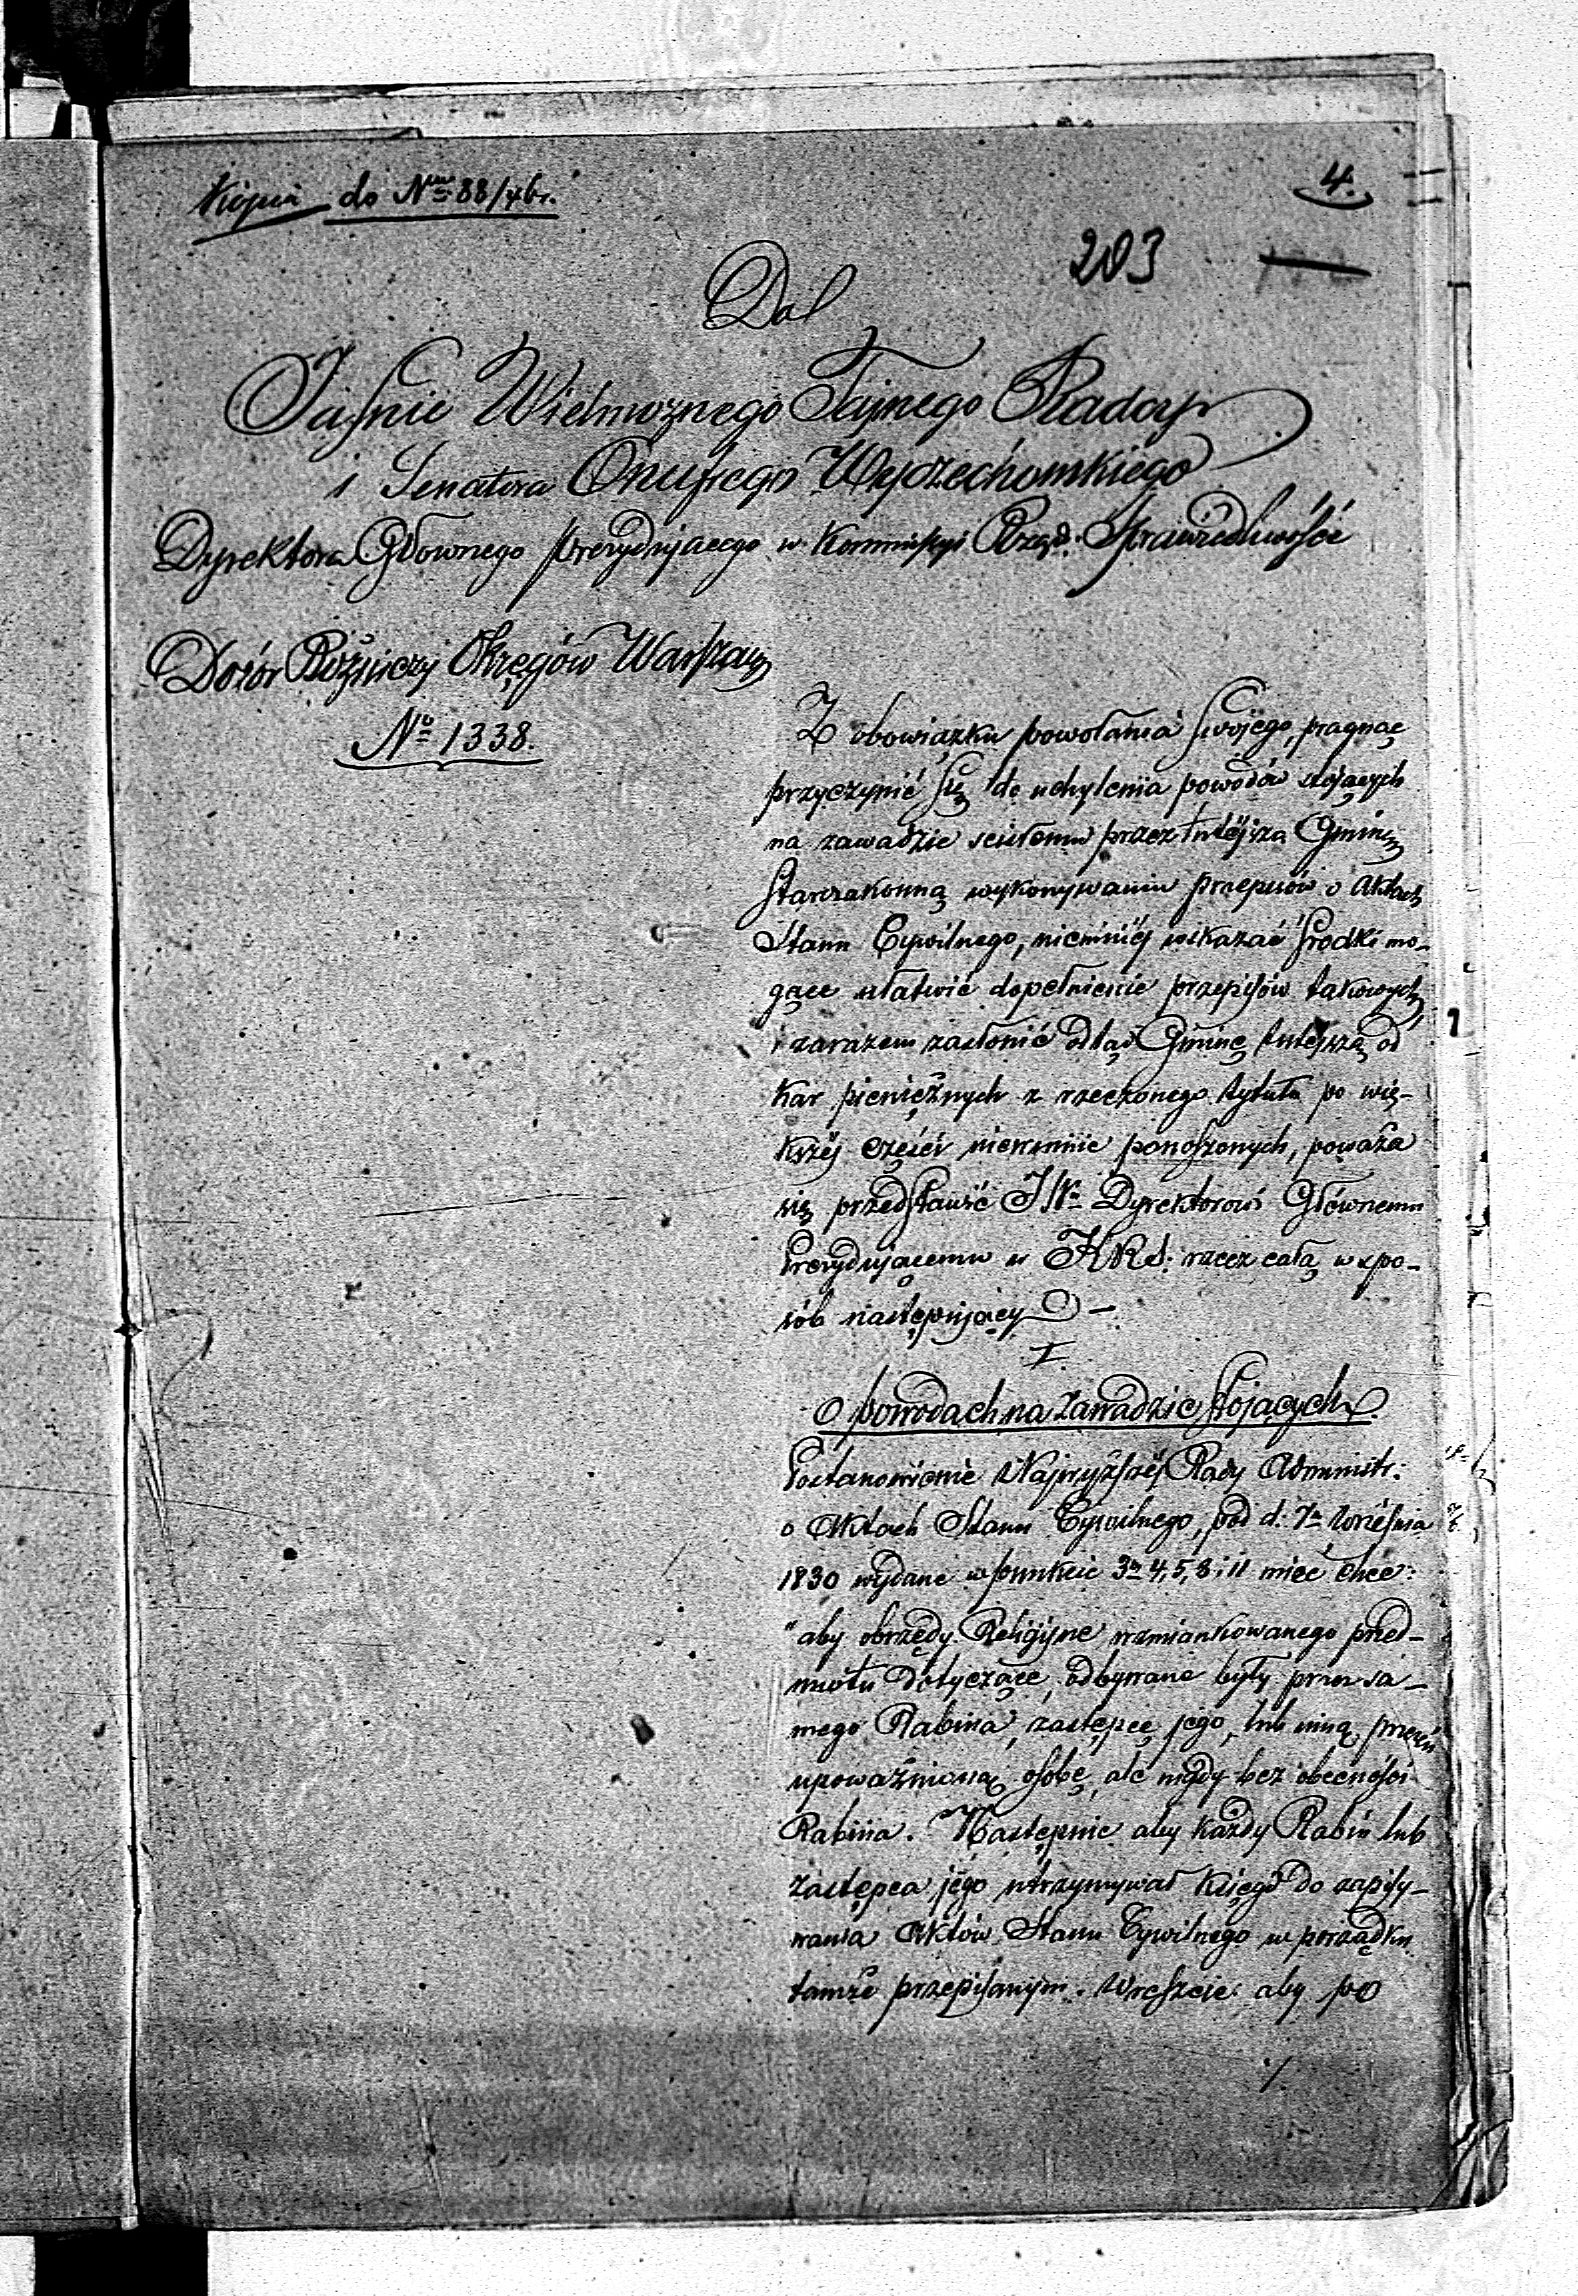 Kopia do Nru 88/46 r.
4.
203
Do
Jaśnie Wielmożnego Tajnego Radcy
i Senatora Onufrego Wyczechowskiego
Dyrektora Głownego prezydującego w Kommissyi Rząd. Sprawiedliwości
Dozór Bóżniczy Okręgów Warszaw
No 1338.
Z obowiązku powołania swojego, pragnąc
przyczynić się do uchylenia powodów stojących
na zawadzie scisłemu przez tutejszą Gminę
Starozakonną wykonywaniu przepisów o Aktach
Stanu Cywilnego, niemniéj wskazać środki mo-
gące ułatwić dopełnienie przepisów takowych
i zarazem zasłonić odtąd Gminę tutejszą od
kar pieniężnych z rzeczonego tytułu po wię-
kszéj części niewinnie ponoszonych, poważa
się przedstawić JWu Dyrektorowi Głównemu
Prezydującemu w KRS: rzecz całą w spo-
sób następujący –
I.
O powodach na zawadzie stojących.
Postanowienie Najwyższéj Rady Administr:
o Aktach Stanu Cywilnego, pod d: 7m Września
1830 wydane w punkcie 3m 4, 5, 8 i 11 mieć chce:
"aby obrzędy Religijne wzmiankowanego przed-
miotu dotyczące, odbywane były przez sa-
mego Rabina, zastępcę jego, lub inną przezeń
upoważnioną osobę, ale nigdy bez obecności
Rabina. Następnie aby każdy Rabin lub
zastępca jego utrzymywał księgi do zapisy-
wania Aktów Stanu Cywilnego w porządku
tamże przepisanym. Wreszcie aby po
./.